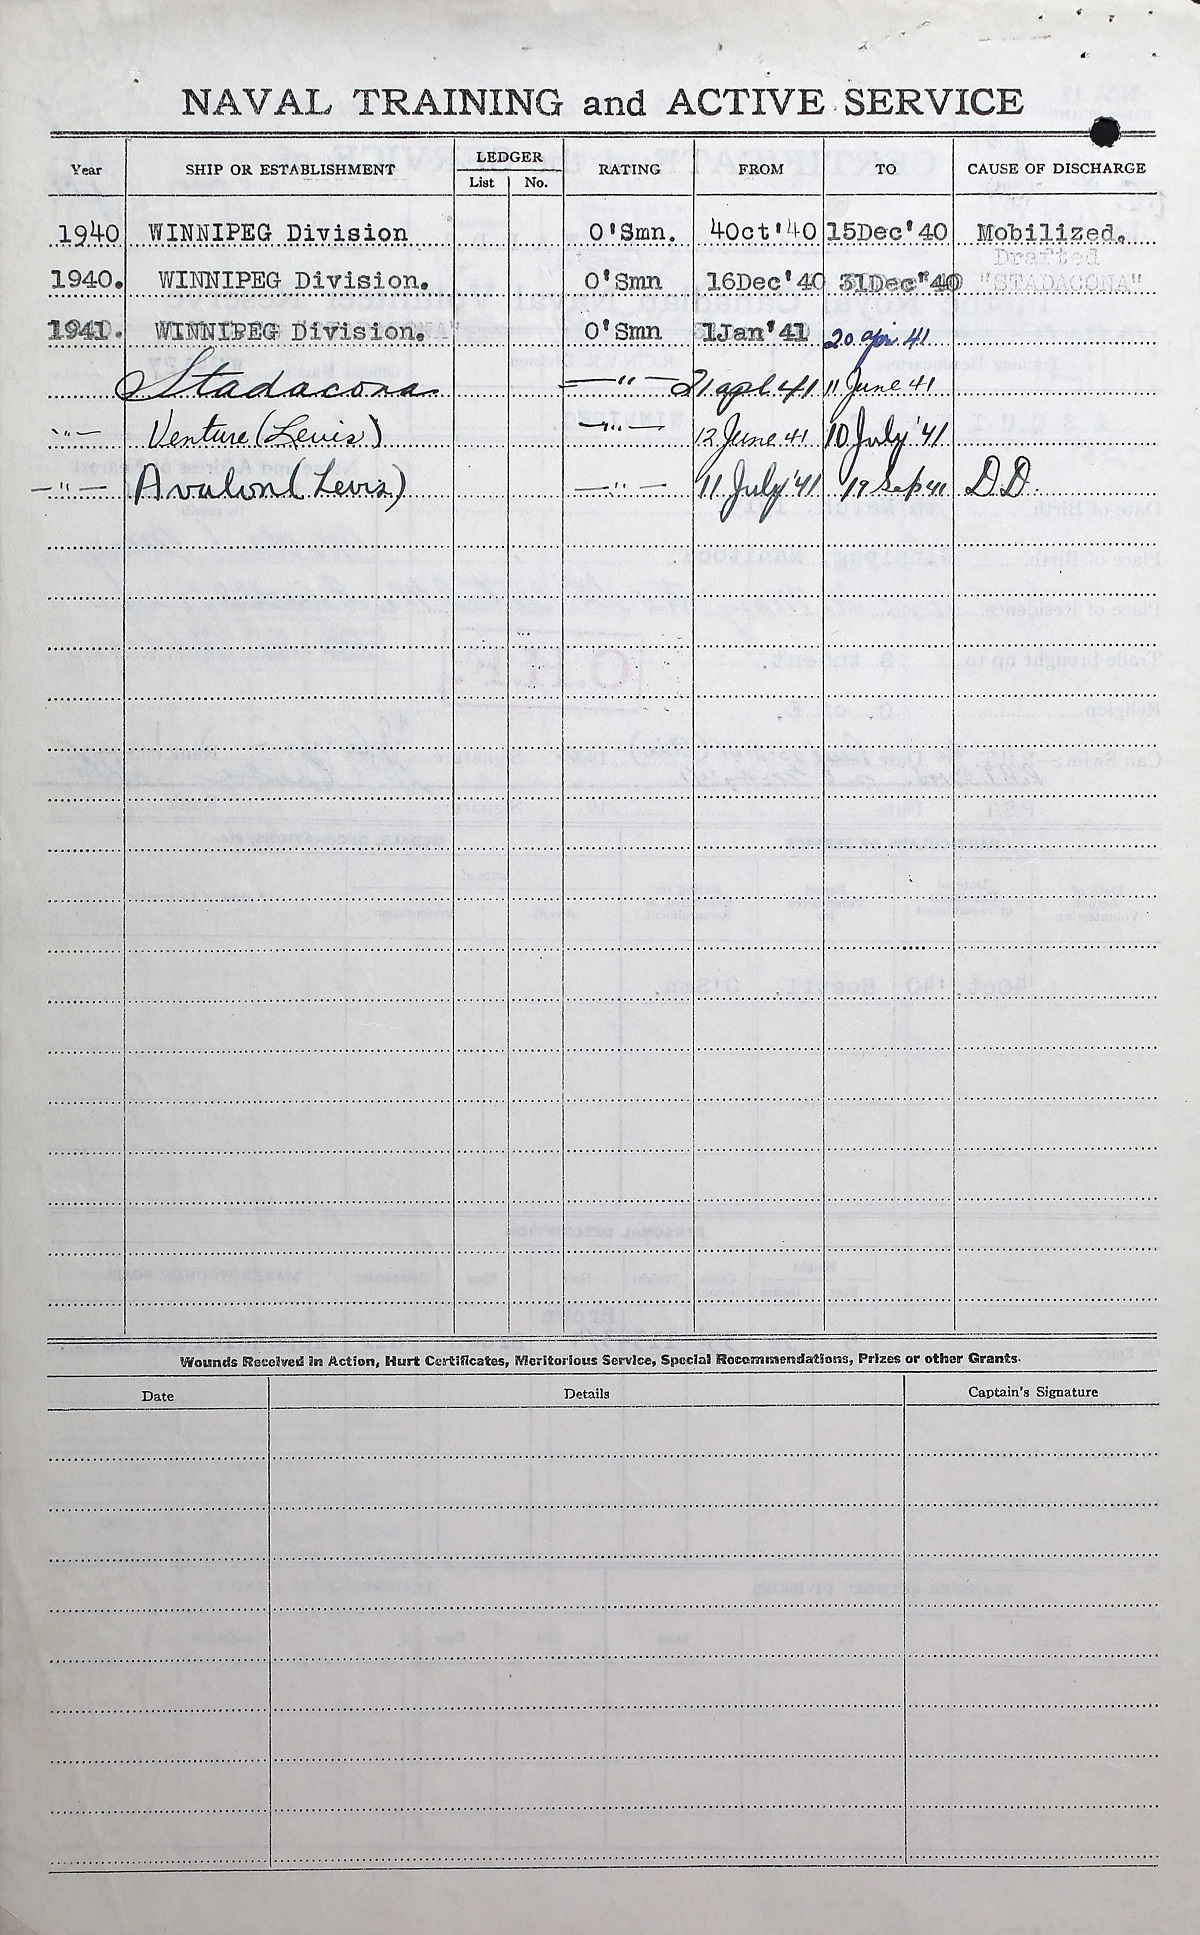 NAVAL TRAINING and ACTIVE SERVICE
Year SHIP OR ESTABLISHMENT LEDGER List No. RATING FROM TO CAUSE OF DISCHARGE
1940 WINNIPEG Division O'Smn. 4Oct'40 15Dec'40 Mobilized.
Drafted
1940. WINNIPEG Division. O'Smn 16Dec'40 31Dec'40 "STADACONA"
1941. WINNIPEG Division. O'Smn 1Jan'41 20 apr 41
Stadacona —"— 21 apl 41 11 June 41
—"— Venture (Levis) —"— 12 June 41 10 July '41
—"— Avalon (Levis) —"— 11 July '41 19 Sep 41 D.D.
Wounds Received in Action, Hurt Certificates, Meritorious Service, Special Recommendations, Prizes or other Grants.
Date Details Captain's Signature